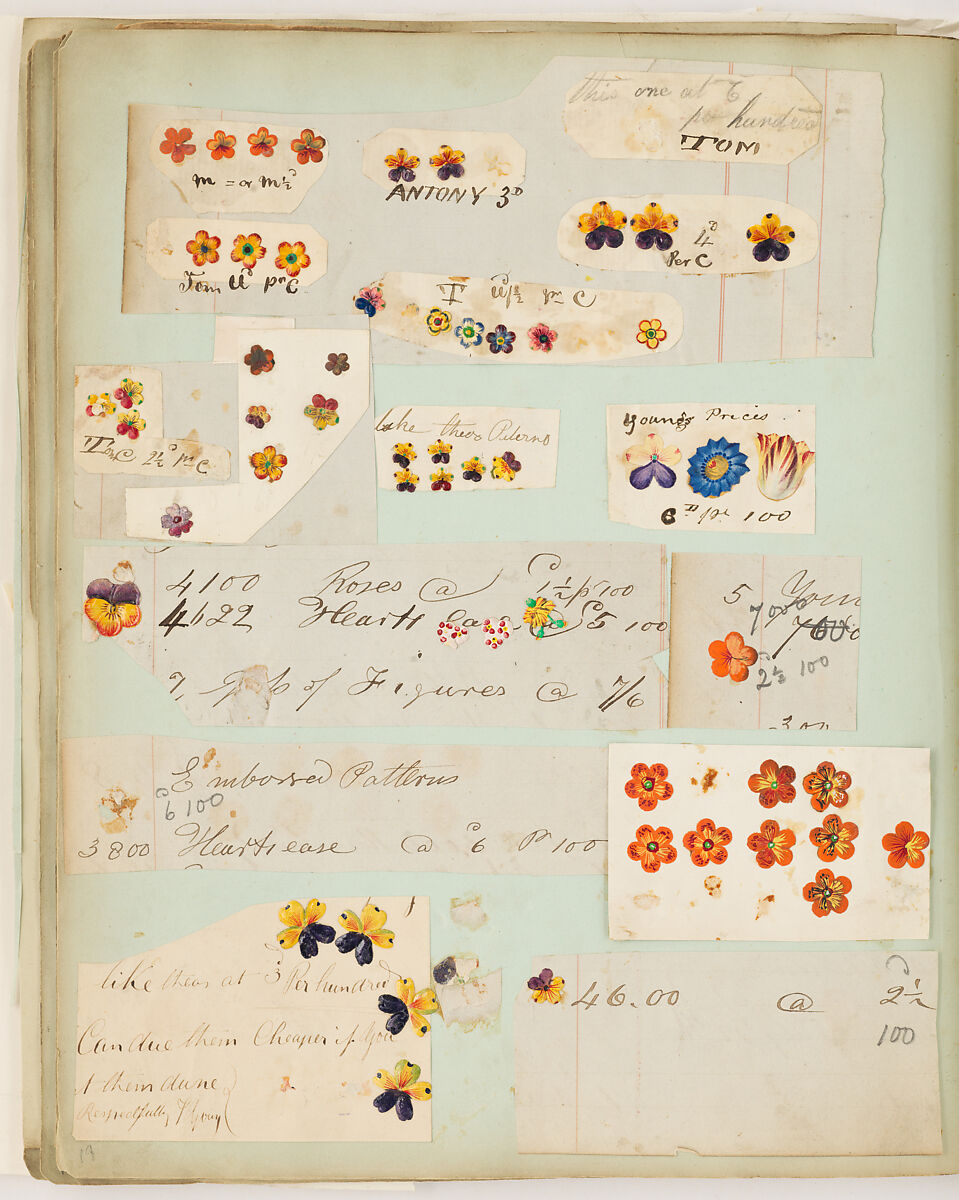 this one at 6
per hundred
TOM
m = or m½ᵈ
ANTONY 3ᴰ
4ᵈ
Per C
Tom pʳ C
T pʳ C
2½ᵈ pʳ C
like theos
Young's Prices .
6ᴰ pʳ 100
4100 Roses @ 1½ pʳ 100
4622 Hearts @ 5 100
of Figures @ 7/6
5
7000
2½ 100
Embossed Patterns
6 100
3800 Heartsease @ 6 P 100
like theos at 3ᵈ Per hundred
Can due them Cheaper if you
them dune
Respectfully
46.00 @ 2½
100
19